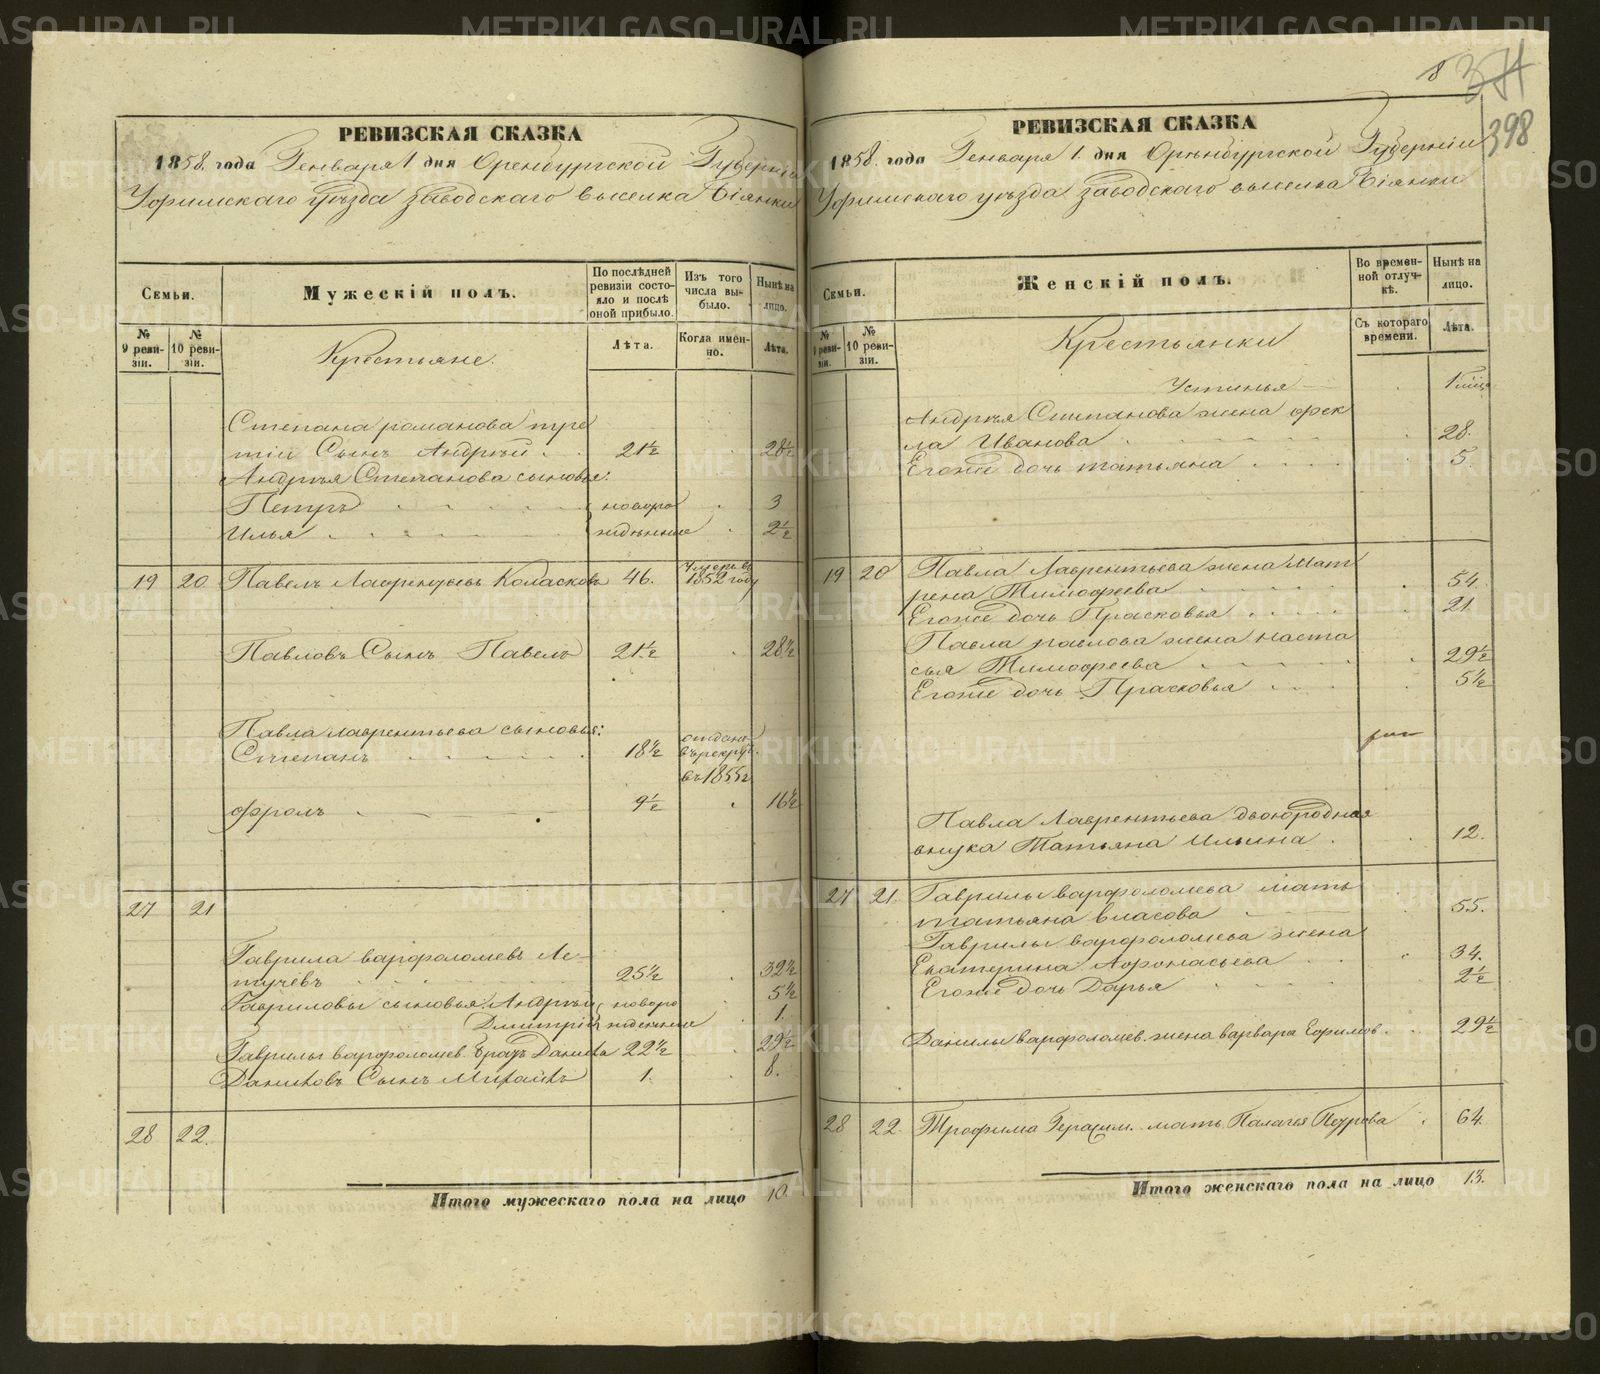 РЕВИЗСКАЯ СКАЗКА
1858. года Генваря 1 дня Оренбургской Губерніи
Уфимскаго уѣзда заводскаго выселка Біянки
Семьи.
Мужескій полъ.
По послѣдней ревизіи состояло и послѣ оной прибыло.
Изъ того числа выбыло.
Нынѣ на лицо.
№ 9 ревизіи.
№ 10 ревизіи.
Крестьяне.
Лѣта.
Когда именно.
Лѣта.
Степана романова тре
тій Сынъ Андрѣй 21½ 28½
Андрѣя Степанова сыновья:
Петръ новоро 3
Илья жденные 2½
19 20 Павелъ Лаврентьевъ Коласковъ 46. Умеръ въ 1852 году
Павловъ Сынъ Павелъ 21½ 28½
Павла лаврентьева сыновья:
Степанъ 18½ отданъ въ рекруты въ 1855 г
Фролъ 9½ 16½
27 21
Гаврила варфоломевъ Ле-
тучевъ 25½ 32½
Гавриловы сыновья: Андрѣй новоро 5½
Дмитрій жденные 1.
Гаврилы варфоломев. братъ Данила 22½ 29½
Даниловъ Сынъ Михайла 1. 8.
28 22.
Итого мужескаго пола на лицо 10.
8 371
398
РЕВИЗСКАЯ СКАЗКА
1858. года Генваря 1. дня Оренбургской Губерніи
Уфимскаго уѣзда заводскаго выселка Біянки
Семьи.
Женскій полъ.
Во временной отлучкѣ.
Нынѣ на лицо.
№ 9 ревизіи.
№ 10 ревизіи.
Крестьянки
Съ котораго времени.
Лѣта.
Устинья 1
Андрѣя Степанова жена фек
ла Иванова 28.
Егоже дочь татьяна 5.
19 20 Павла Лаврентьева жена Мат
рена Тимофеева 54.
Егоже дочь Прасковья 21.
Павла павлова жена наста
сья Тимофеева 29½
Егоже дочь Прасковья 5½
Павла Лаврентьева двоюродная
внука Татьяна Ильина 12.
27 21. Гаврилы варфоломева мать
татьяна власова 55.
Гаврилы варфоломева жена
Екатерина Афонасьева 34.
Егоже дочь Дарья 2½
Данилы варфоломев. жена варвара Ефимов. 29½
28 22. Трофима Герасим. мать Палагея Петрова 64.
Итого женскаго пола на лицо 13.
METRIKI.GASO-URAL.RU